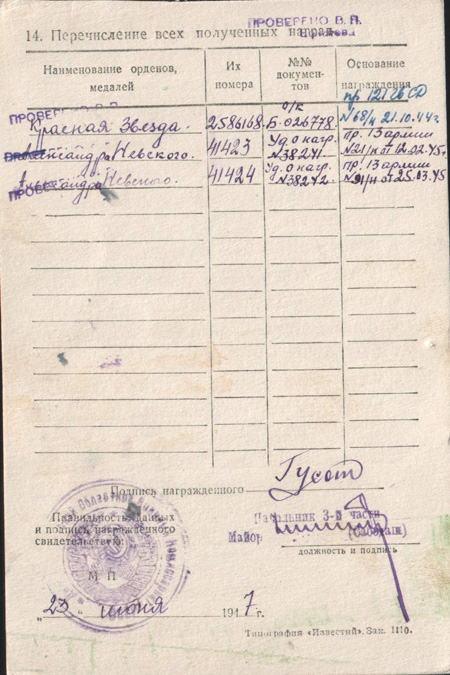 ПРОВЕРЕНО В. П.
14. Перечисление всех полученных наград
Наименование орденов, медалей
Их номера
№№ документов
Основание награждения
ПРОВЕРЕНО В. П.
Красная Звезда. 2586168 о/к Б-026778 пр. 121 гв СД №68/н 21.10.44г
Александра Невского. 41423 Уд. о нагр. №38241. пр. 13 армии №21/н от 12.02.45г.
Александра Невского. 41424 Уд. о нагр. №38242. пр. 13 армии №91/н от 25.03.45
Подпись награжденного
Правильность данных
и подпись награжденного
свидетельствую:
Начальник 3-й части
Майор
должность и подпись
М П
„23" июня 1947г.
Типография «Известий». Зак. 1110.